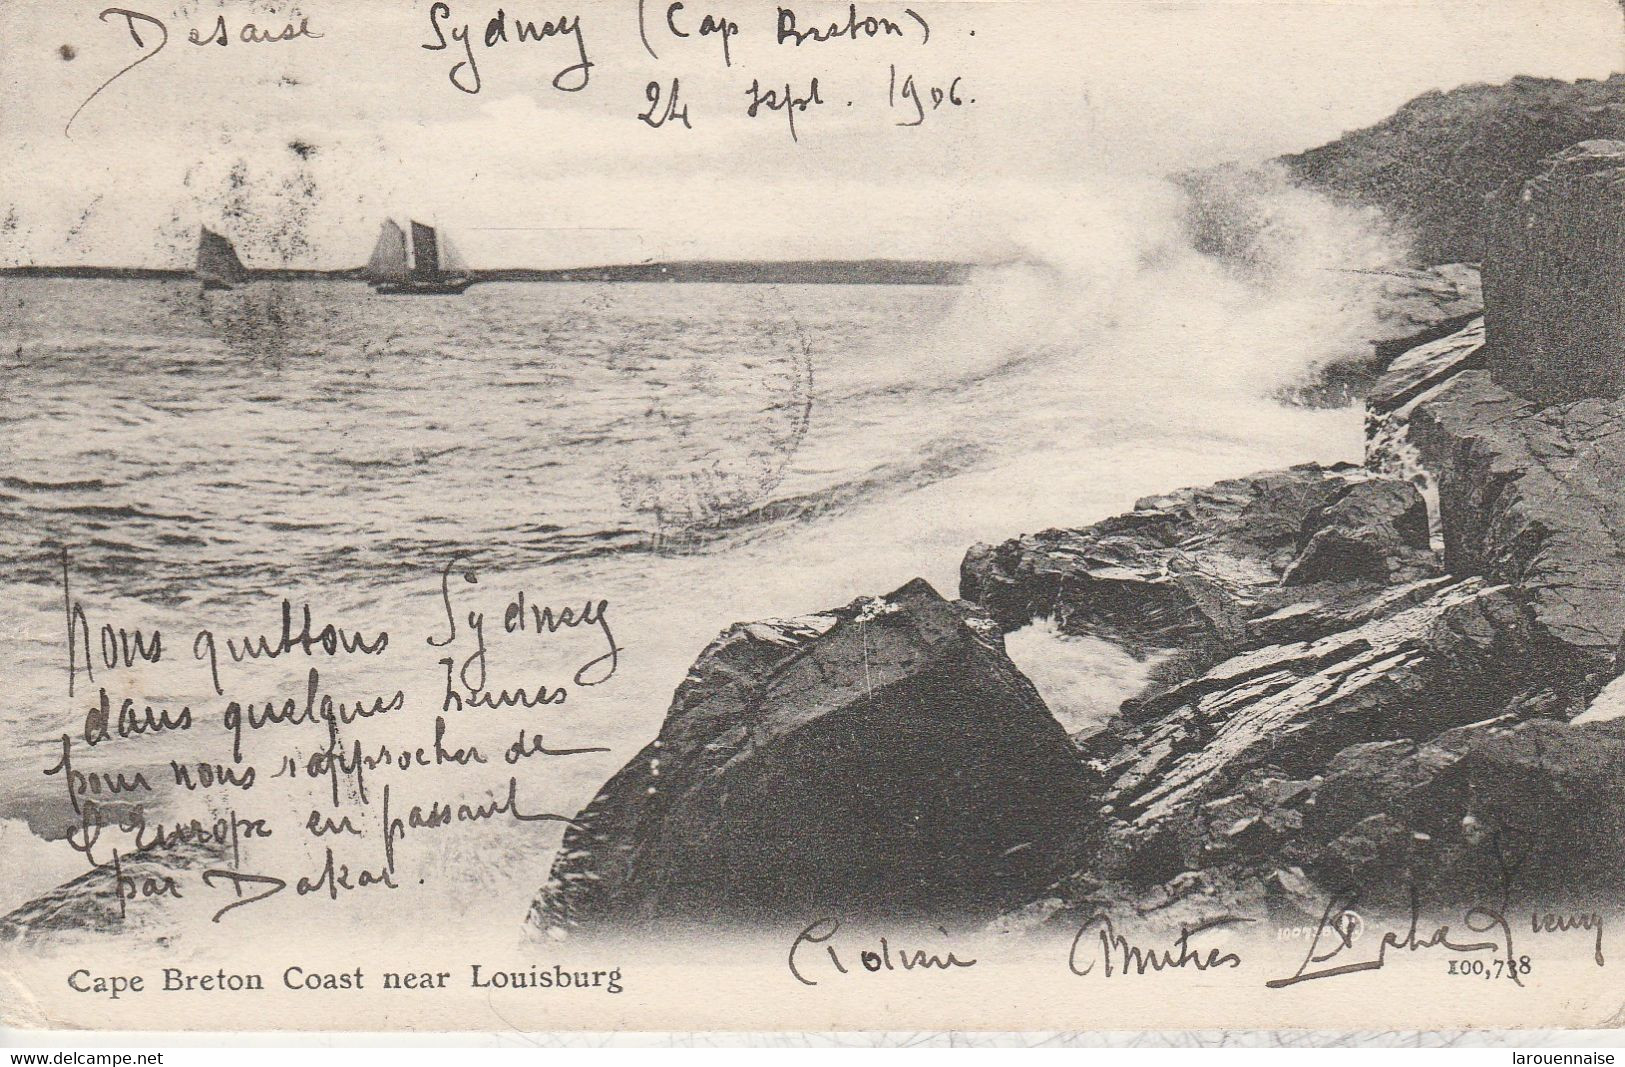 Desaise Sydney (Cap Breton).
24 Sept. 1906.
Nous quittons Sydney
dans quelques heures
pour nous rapprocher de
l'Europe en passant
par Dakar.
Cape Breton Coast near Louisburg
100,738
delcampe.net
larouennaise